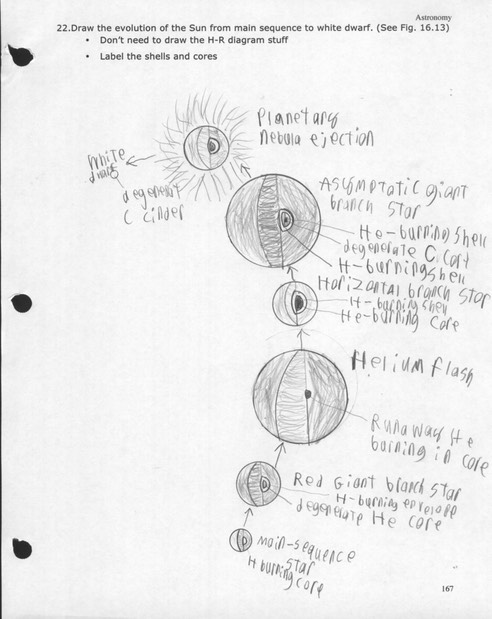 Astronomy
22.Draw the evolution of the Sun from main sequence to white dwarf. (See Fig. 16.13)
• Don't need to draw the H-R diagram stuff
• Label the shells and cores
Planetary
Nebula ejection
White
dwarf
degenerat
C cinder
Asymptotic giant
branch star
He-burning shell
degenerate C core
H-burning shell
Horizontal branch star
H-burning shell
He-burning core
Helium flash
Runaway He
burning in core
Red Giant branch star
H-burning envelope
degenerate He core
main-sequence
star
H burning
core
167